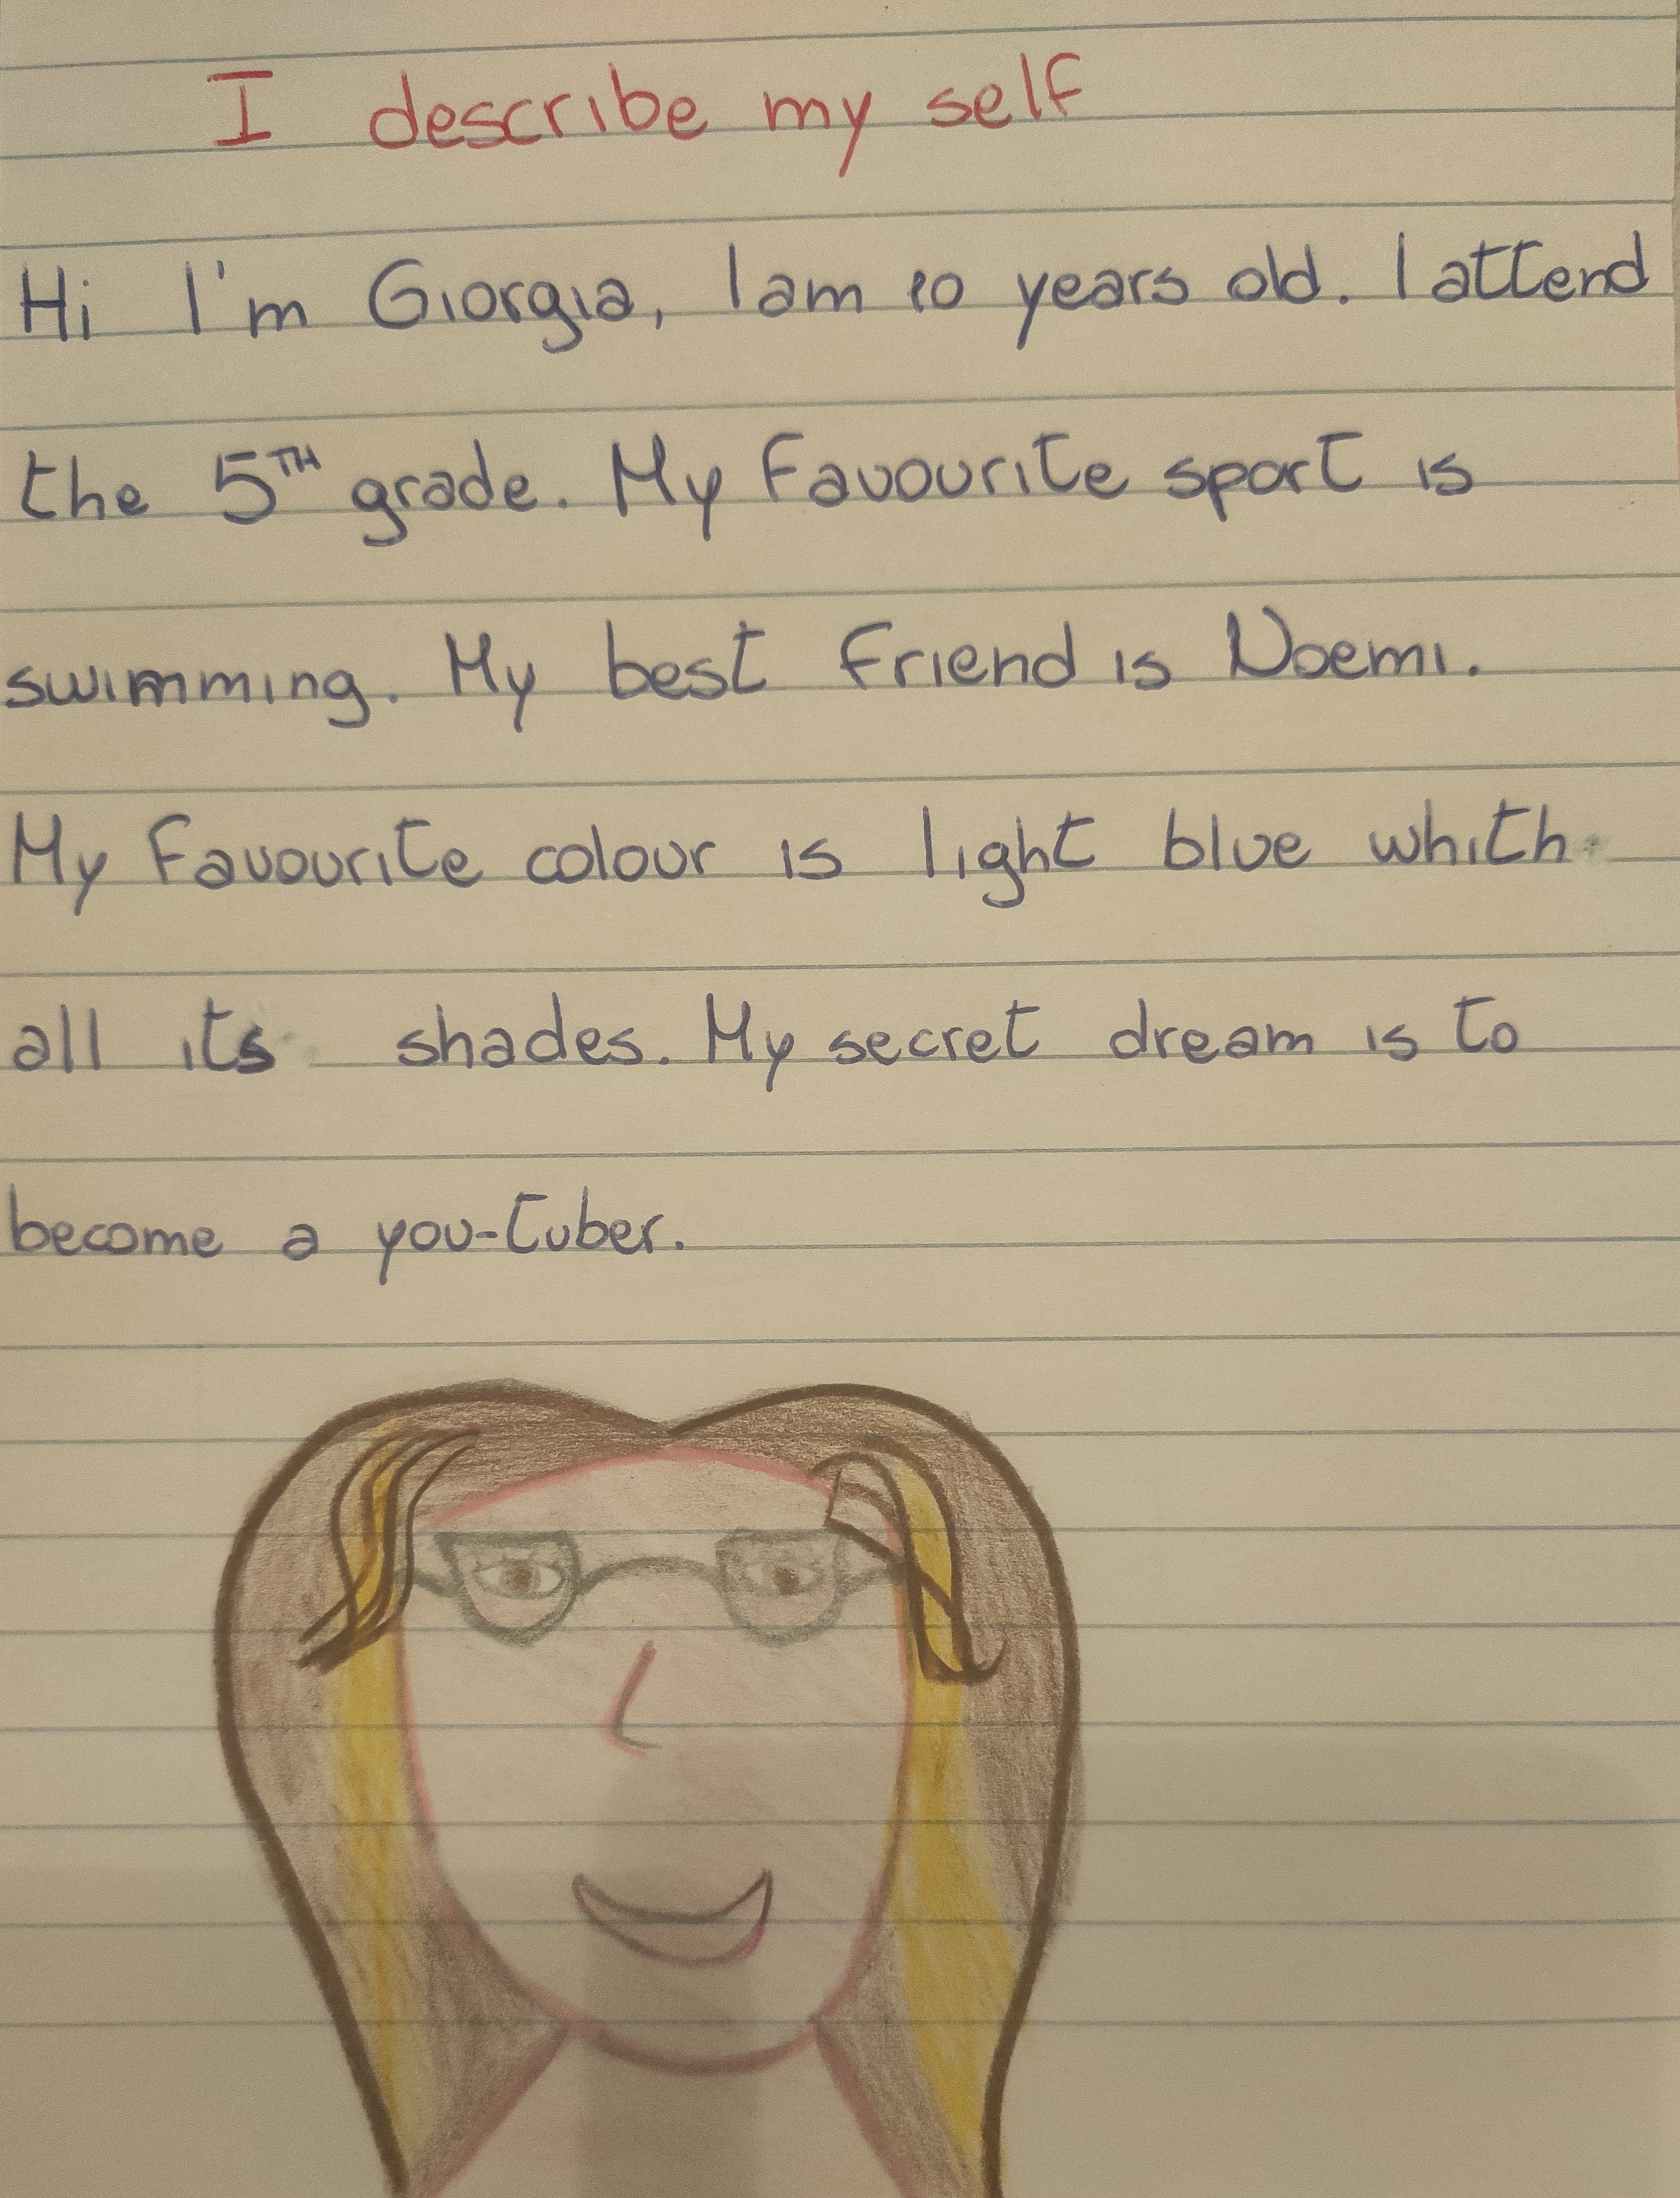 I describe my self
Hi I'm Giorgia, I am 10 years old. I attend
the 5TH grade. My Favourite sport is
swimming. My best Friend is Noemi.
My Favourite colour is light blue whith
all its shades. My secret dream is to
become a you-tuber.